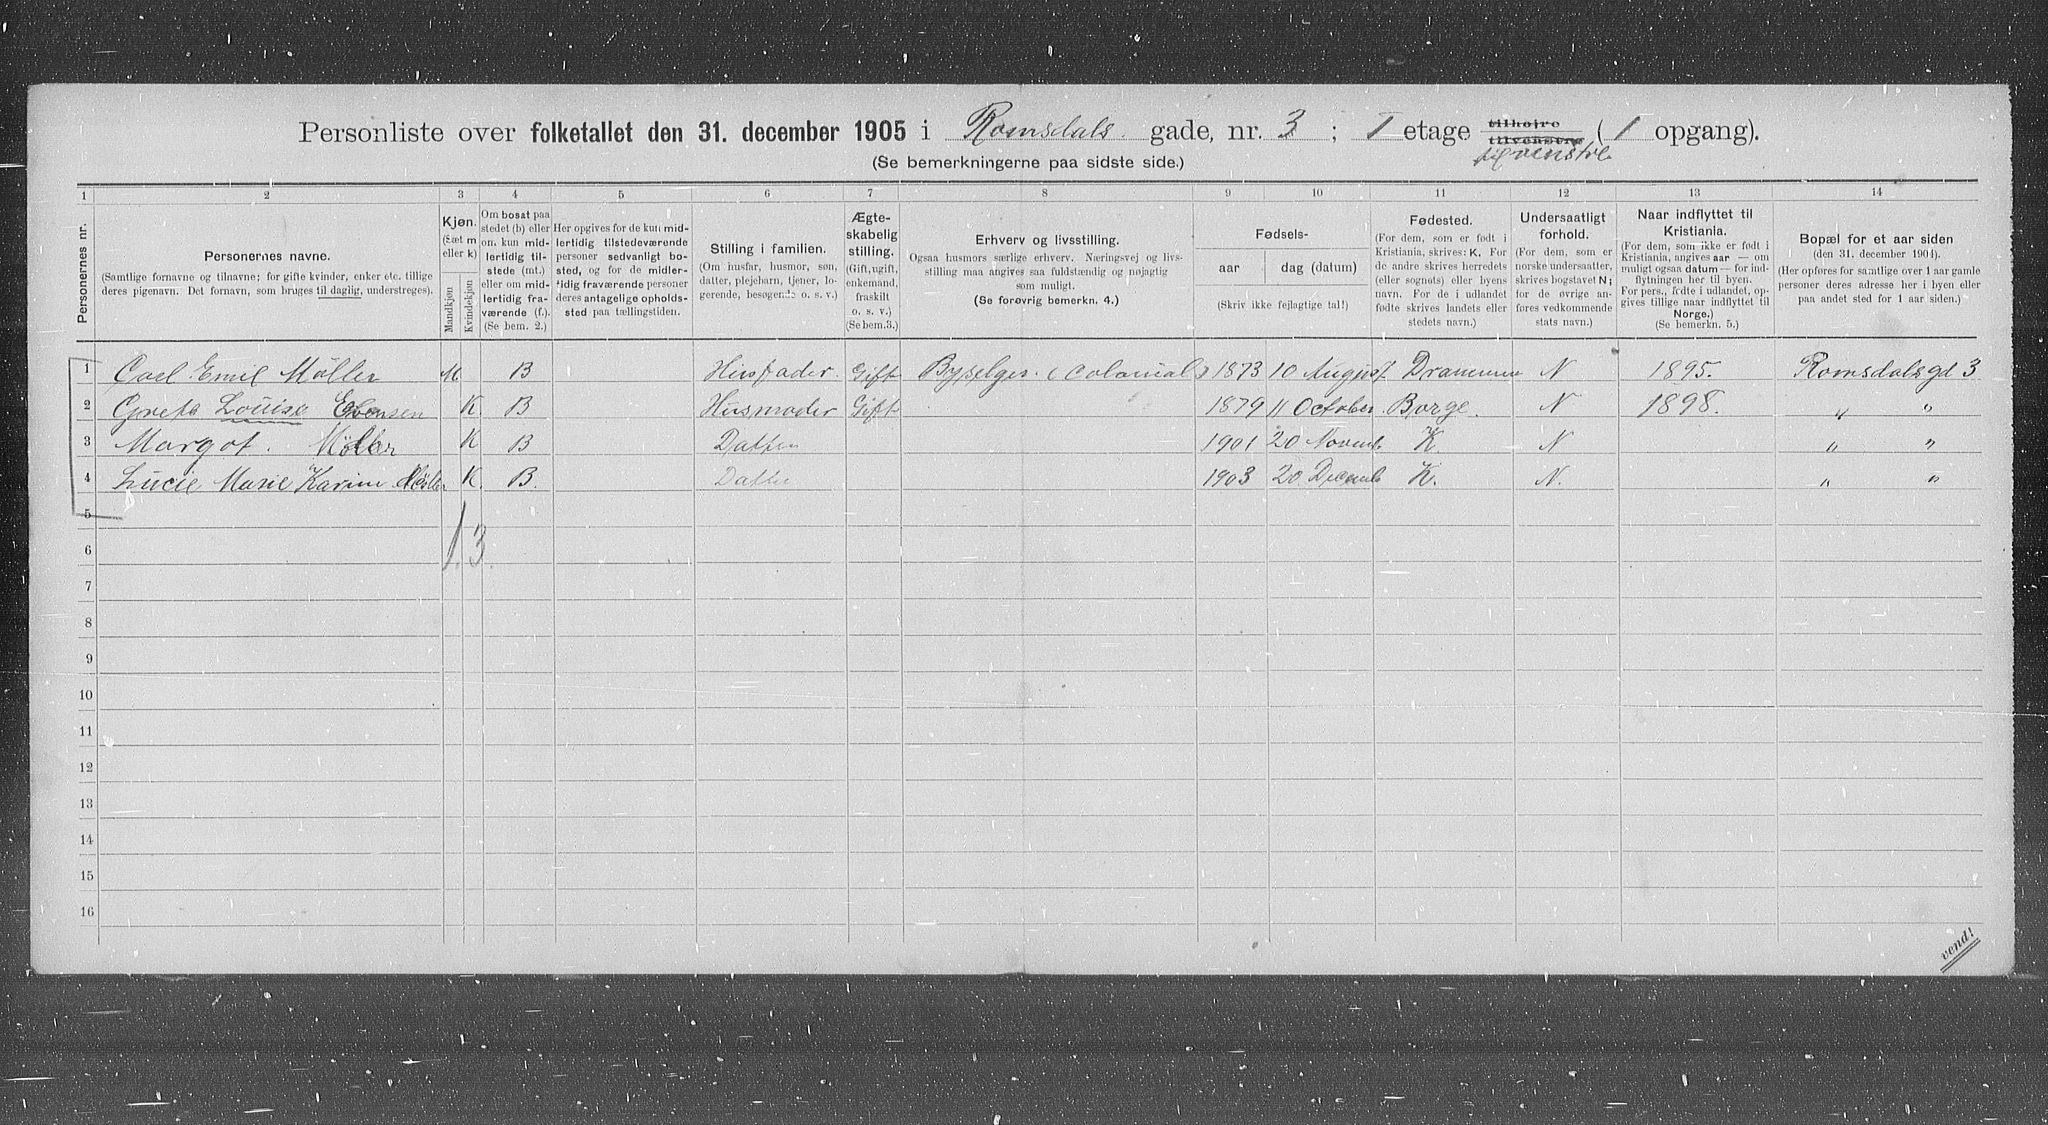 Personliste over folketallet den 31. december 1905 i Romsdals gade, nr. 3 ; I etage tilhøjre tilvenstre (1 opgang).
til venstre
(Se bemerkningerne paa sidste side.)
1 2 3 4 5 6 7 8 9 10 11 12 13 14
Personernes nr.
Personernes navne.
(Samtlige fornavne og tilnavne; for gifte kvinder, enker etc. tillige
deres pigenavn. Det fornavn, som bruges til daglig, understreges).
Kjøn.
(Sæt m
eller k)
Mandkjøn
Kvindekjøn
Om bosat paa
stedet (b) eller
om kun mid-
lertidig til-
stede (mt.)
eller om mid-
lertidig fra-
værende (f.).
(Se bem. 2.)
Her opgives for de kun mid-
lertidig tilstedeværende
personer sedvanligt bo-
sted, og for de midler-
tidig fraværende personer
deres antagelige opholds-
sted paa tællingstiden.
Stilling i familien.
(Om husfar, husmor, søn,
datter, plejebarn, tjener, lo-
gerende, besøgende o. s. v.)
Ægte-
skabelig
stilling.
(Gift, ugift,
enkemand,
fraskilt
o. s. v.)
(Se bem.3.)
Erhverv og livsstilling.
Ogsaa husmors særlige erhverv. Næringsvej og livs-
stilling maa angives saa fuldstændig og nøjagtig
som muligt.
(Se forøvrig bemerkn. 4.)
Fødsels-
aar dag (datum)
(Skriv ikke fejlagtige tal!)
Fødested.
(For dem, som er født i
Kristiania, skrives: K. For
de andre skrives herredets
(eller sognets) eller byens
navn. For de i udlandet
fødte skrives landets eller
stedets navn.)
Undersaatligt
forhold.
(For dem, som er
norske undersaatter,
skrives bogstavet N;
for de øvrige an-
føres vedkommende
stats navn.)
Naar indflyttet til
Kristiania.
(For dem, som ikke er født i
Kristiania, angives aar — om
muligt ogsaa datum — for ind-
flytningen her til byen.
For pers., fødte i udlandet, op-
gives tillige naar indflyttet til
Norge.)
(Se bemerkn. 5.)
Bopæl for et aar siden
(den 31. december 1904).
(Her opføres for samtlige over 1 aar gamle
personer deres adresse her i byen eller
paa andet sted for 1 aar siden.)
1 Carl Emil Møller M B Husfader Gift (Colonial) 1873 10 August Drammen N 1895. Romsdals gd 3
2 Louise Ebensen K. B Husmoder Gift 1879 11 October Borge. N 1898. " "
3 Margot. Møller K B Datter 1901 20 Novemb K. N " "
4 Lucie Marie Karine Møller K. B. Datter 1903 20 Decemb K. N. " "
5
1. 3.
6
7
8
9
10
11
12
13
14
15
16
vend!